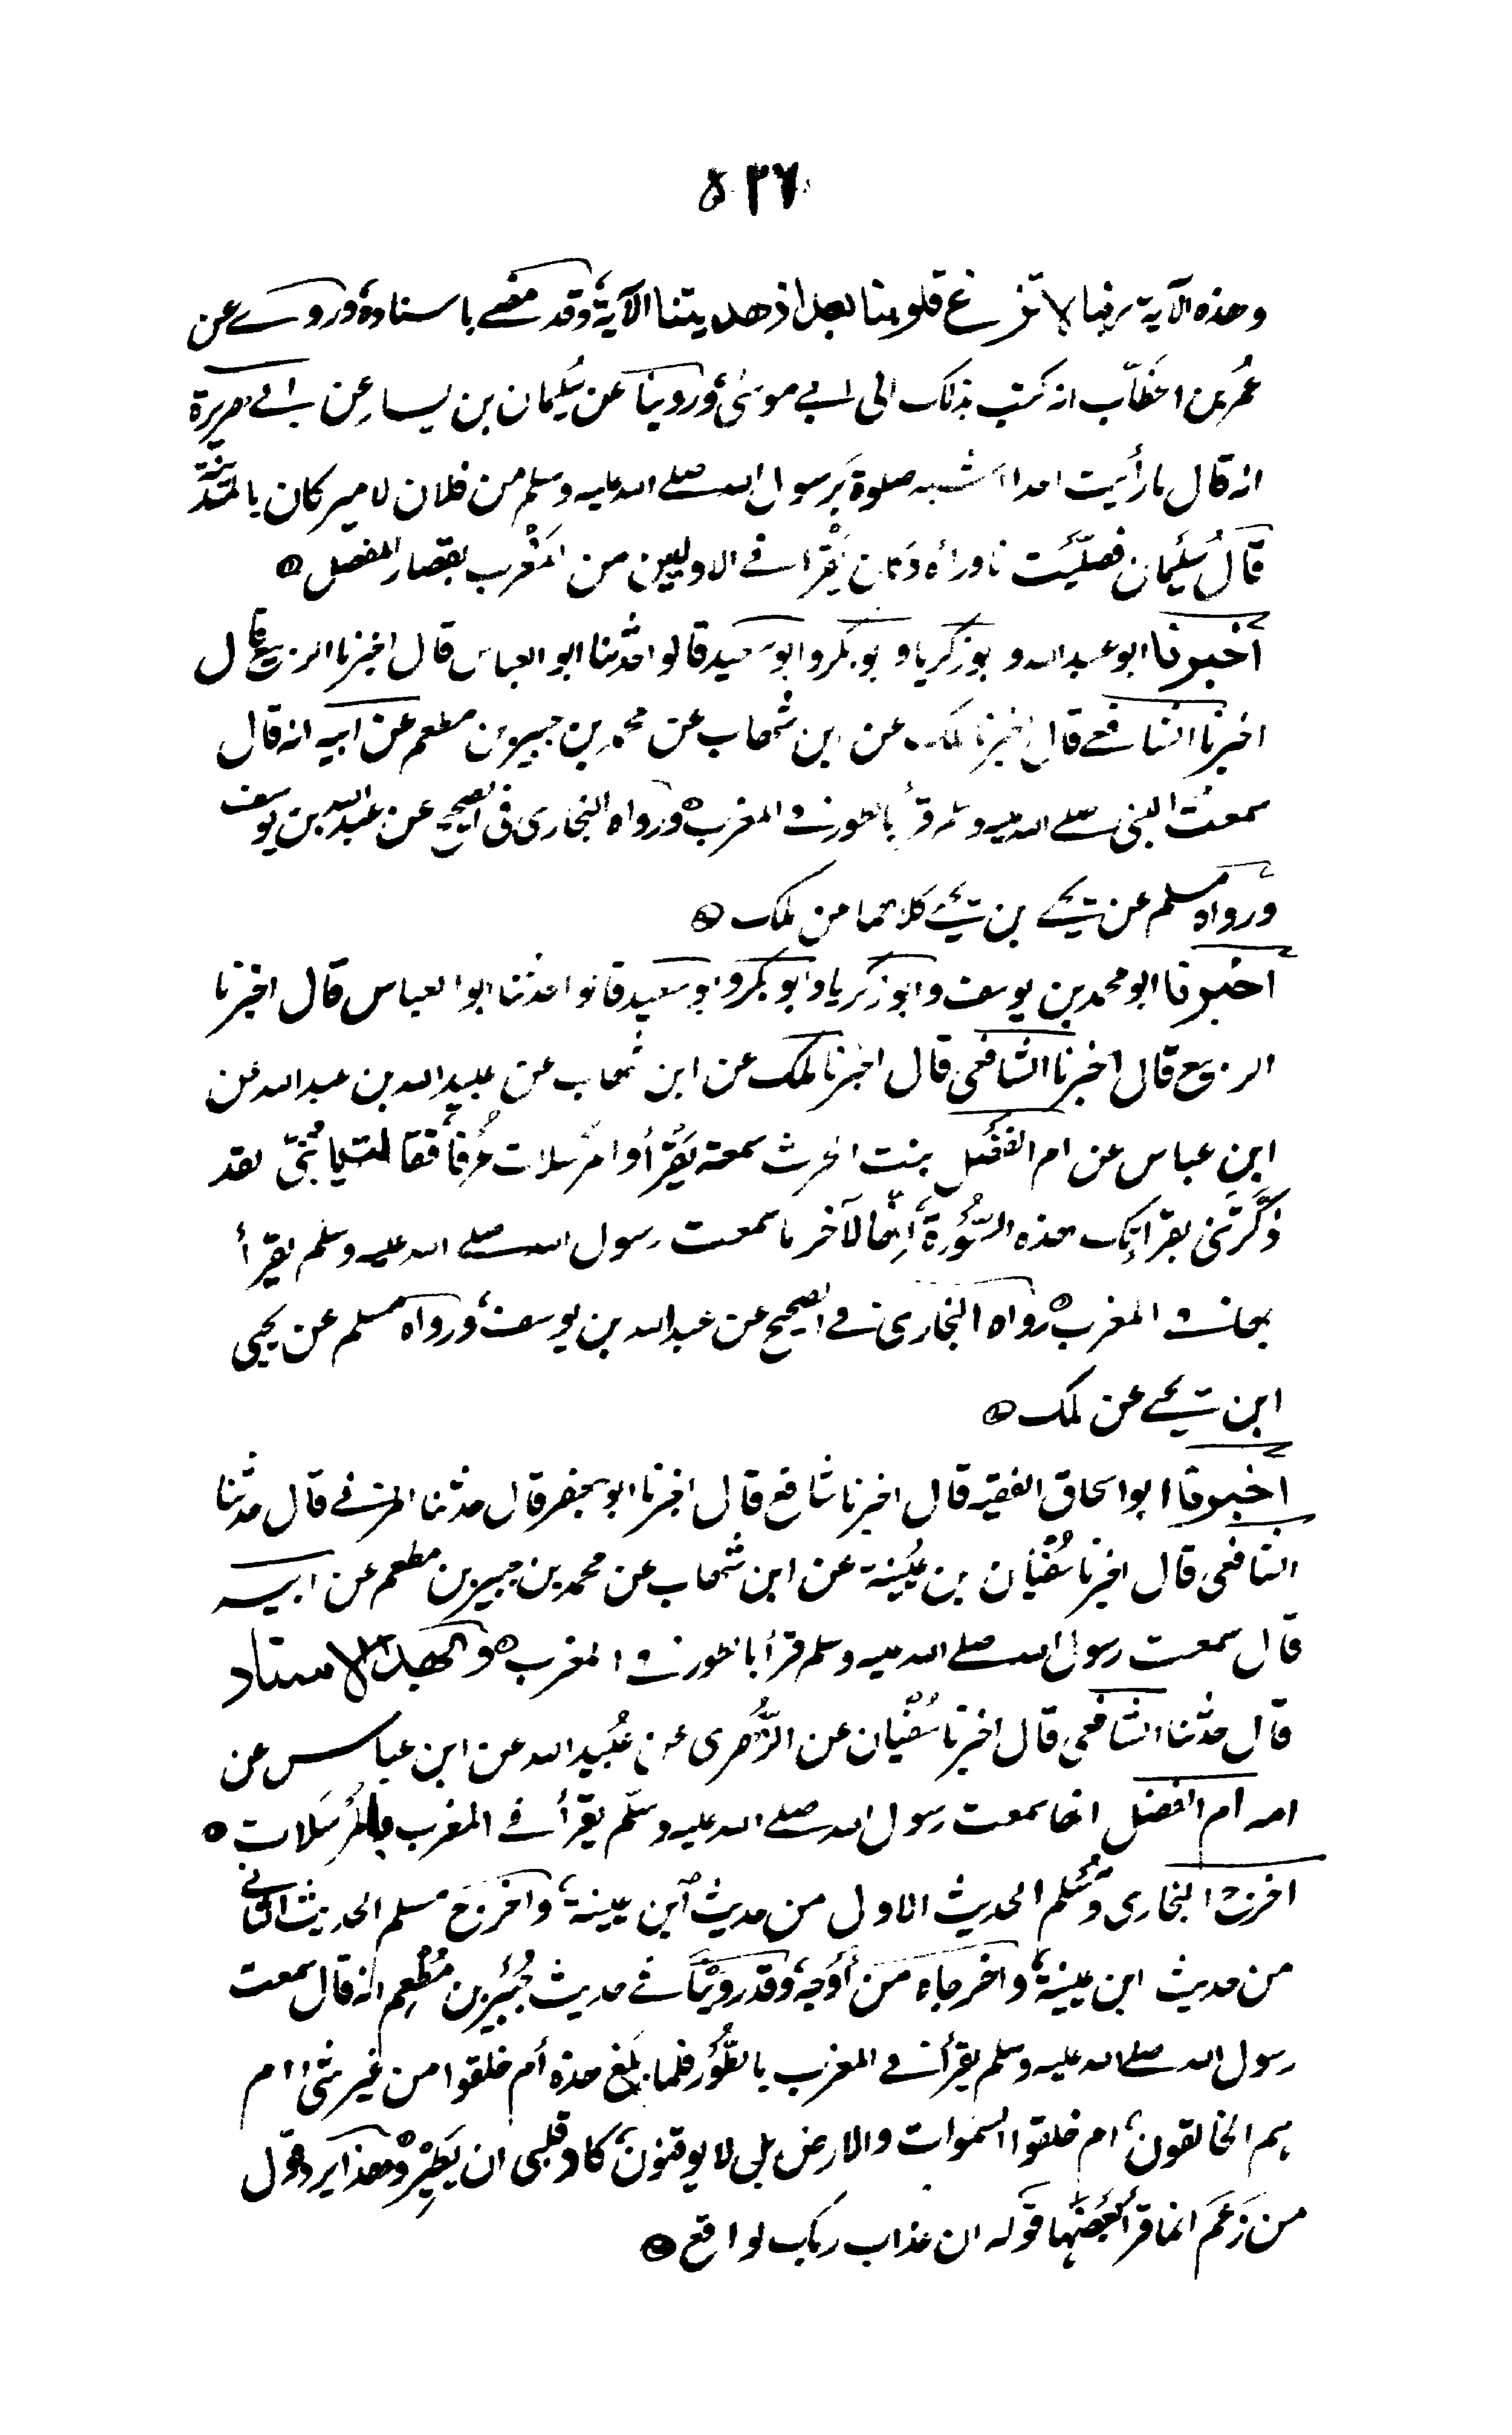 ٥٣٧
وهذه الآية ربنا لا تزغ قلوبنا بعد اذ هديتنا الآية، وقد مضى باسناده وروى عن
عمر بن الخطاب انه كتب بذلك الى ابي موسى، وروينا عن سليمان بن يسار عن ابي هريرة
انه قال ما رأيت احدا اشبه صلوة برسول الله صلى الله عليه وسلم من فلان لامير كان بالمدينة
قال سليمان فصليت انا وراه وكان يقرا في الاوليين من المغرب بقصار المفصل
اخبرنا ابو عبد الله وابو زكريا وابو بكر وابو سعيد قالوا حدثنا ابو العباس قال اخبرنا الربيع قال
اخبرنا الشافعي قال اخبرنا ملك عن ابن شهاب عن محمد بن جبير بن مطعم عن ابيه انه قال
سمعت النبي صلى الله عليه وسلم قرأ بالطور في المغرب ورواه البخاري في الصحيح عن عبد الله بن يوسف
ورواه مسلم عن يحيى بن يحيى كلاهما عن ملك
اخبرنا ابو محمد بن يوسف وابو زكريا وابو بكر وابو سعيد قالوا حدثنا ابو العباس قال اخبرنا
الربيع قال اخبرنا الشافعي قال اخبرنا ملك عن ابن شهاب عن عبيد الله بن عبد الله عن
ابن عباس عن ام الفضل بنت الحرث سمعته يقرأ والمرسلات عرفا فقالت يا بني لقد
ذكرتني بقراتك هذه السورة، انها لآخر ما سمعت رسول الله صلى الله عليه وسلم يقرأ
بها في المغرب رواه البخاري في الصحيح عن عبد الله بن يوسف، ورواه مسلم عن يحيى
ابن يحيى عن ملك
اخبرنا ابو اسحاق الفقيه قال اخبرنا شافع قال اخبرنا ابو جعفر قال حدثنا المزني قال حدثنا
الشافعي قال اخبرنا سفيان بن عيينة عن ابن شهاب عن محمد بن جبير بن مطعم عن ابيه
قال سمعت رسول الله صلى الله عليه وسلم قرأ بالطور في المغرب وبهذا الاسناد
قال حدثنا الشافعي قال اخبرنا سفيان عن الزهري عن عبيد الله عن ابن عباس عن
امه ام الفضل انها سمعت رسول الله صلى الله عليه وسلم يقرأ في المغرب بالمرسلات
اخرج البخاري ومسلم الحديث الاول من حديث ابن عيينة، واخرج مسلم الحديث الثاني
من حديث ابن عيينة، واخرجاه من أوجه، وقد روينا في حديث جبير بن مطعم انه قال سمعت
رسول الله صلى الله عليه وسلم يقرأ في المغرب بالطور فلما بلغ هذه أم خلقوا من غير شئ ام
هم الخالقون، ام خلقوا السموات والارض بل لا يوقنون، كاد قلبي ان يطير وهذا يرد قول
من زعم انما قرأ بعضها قوله ان عذاب ربك لواقع